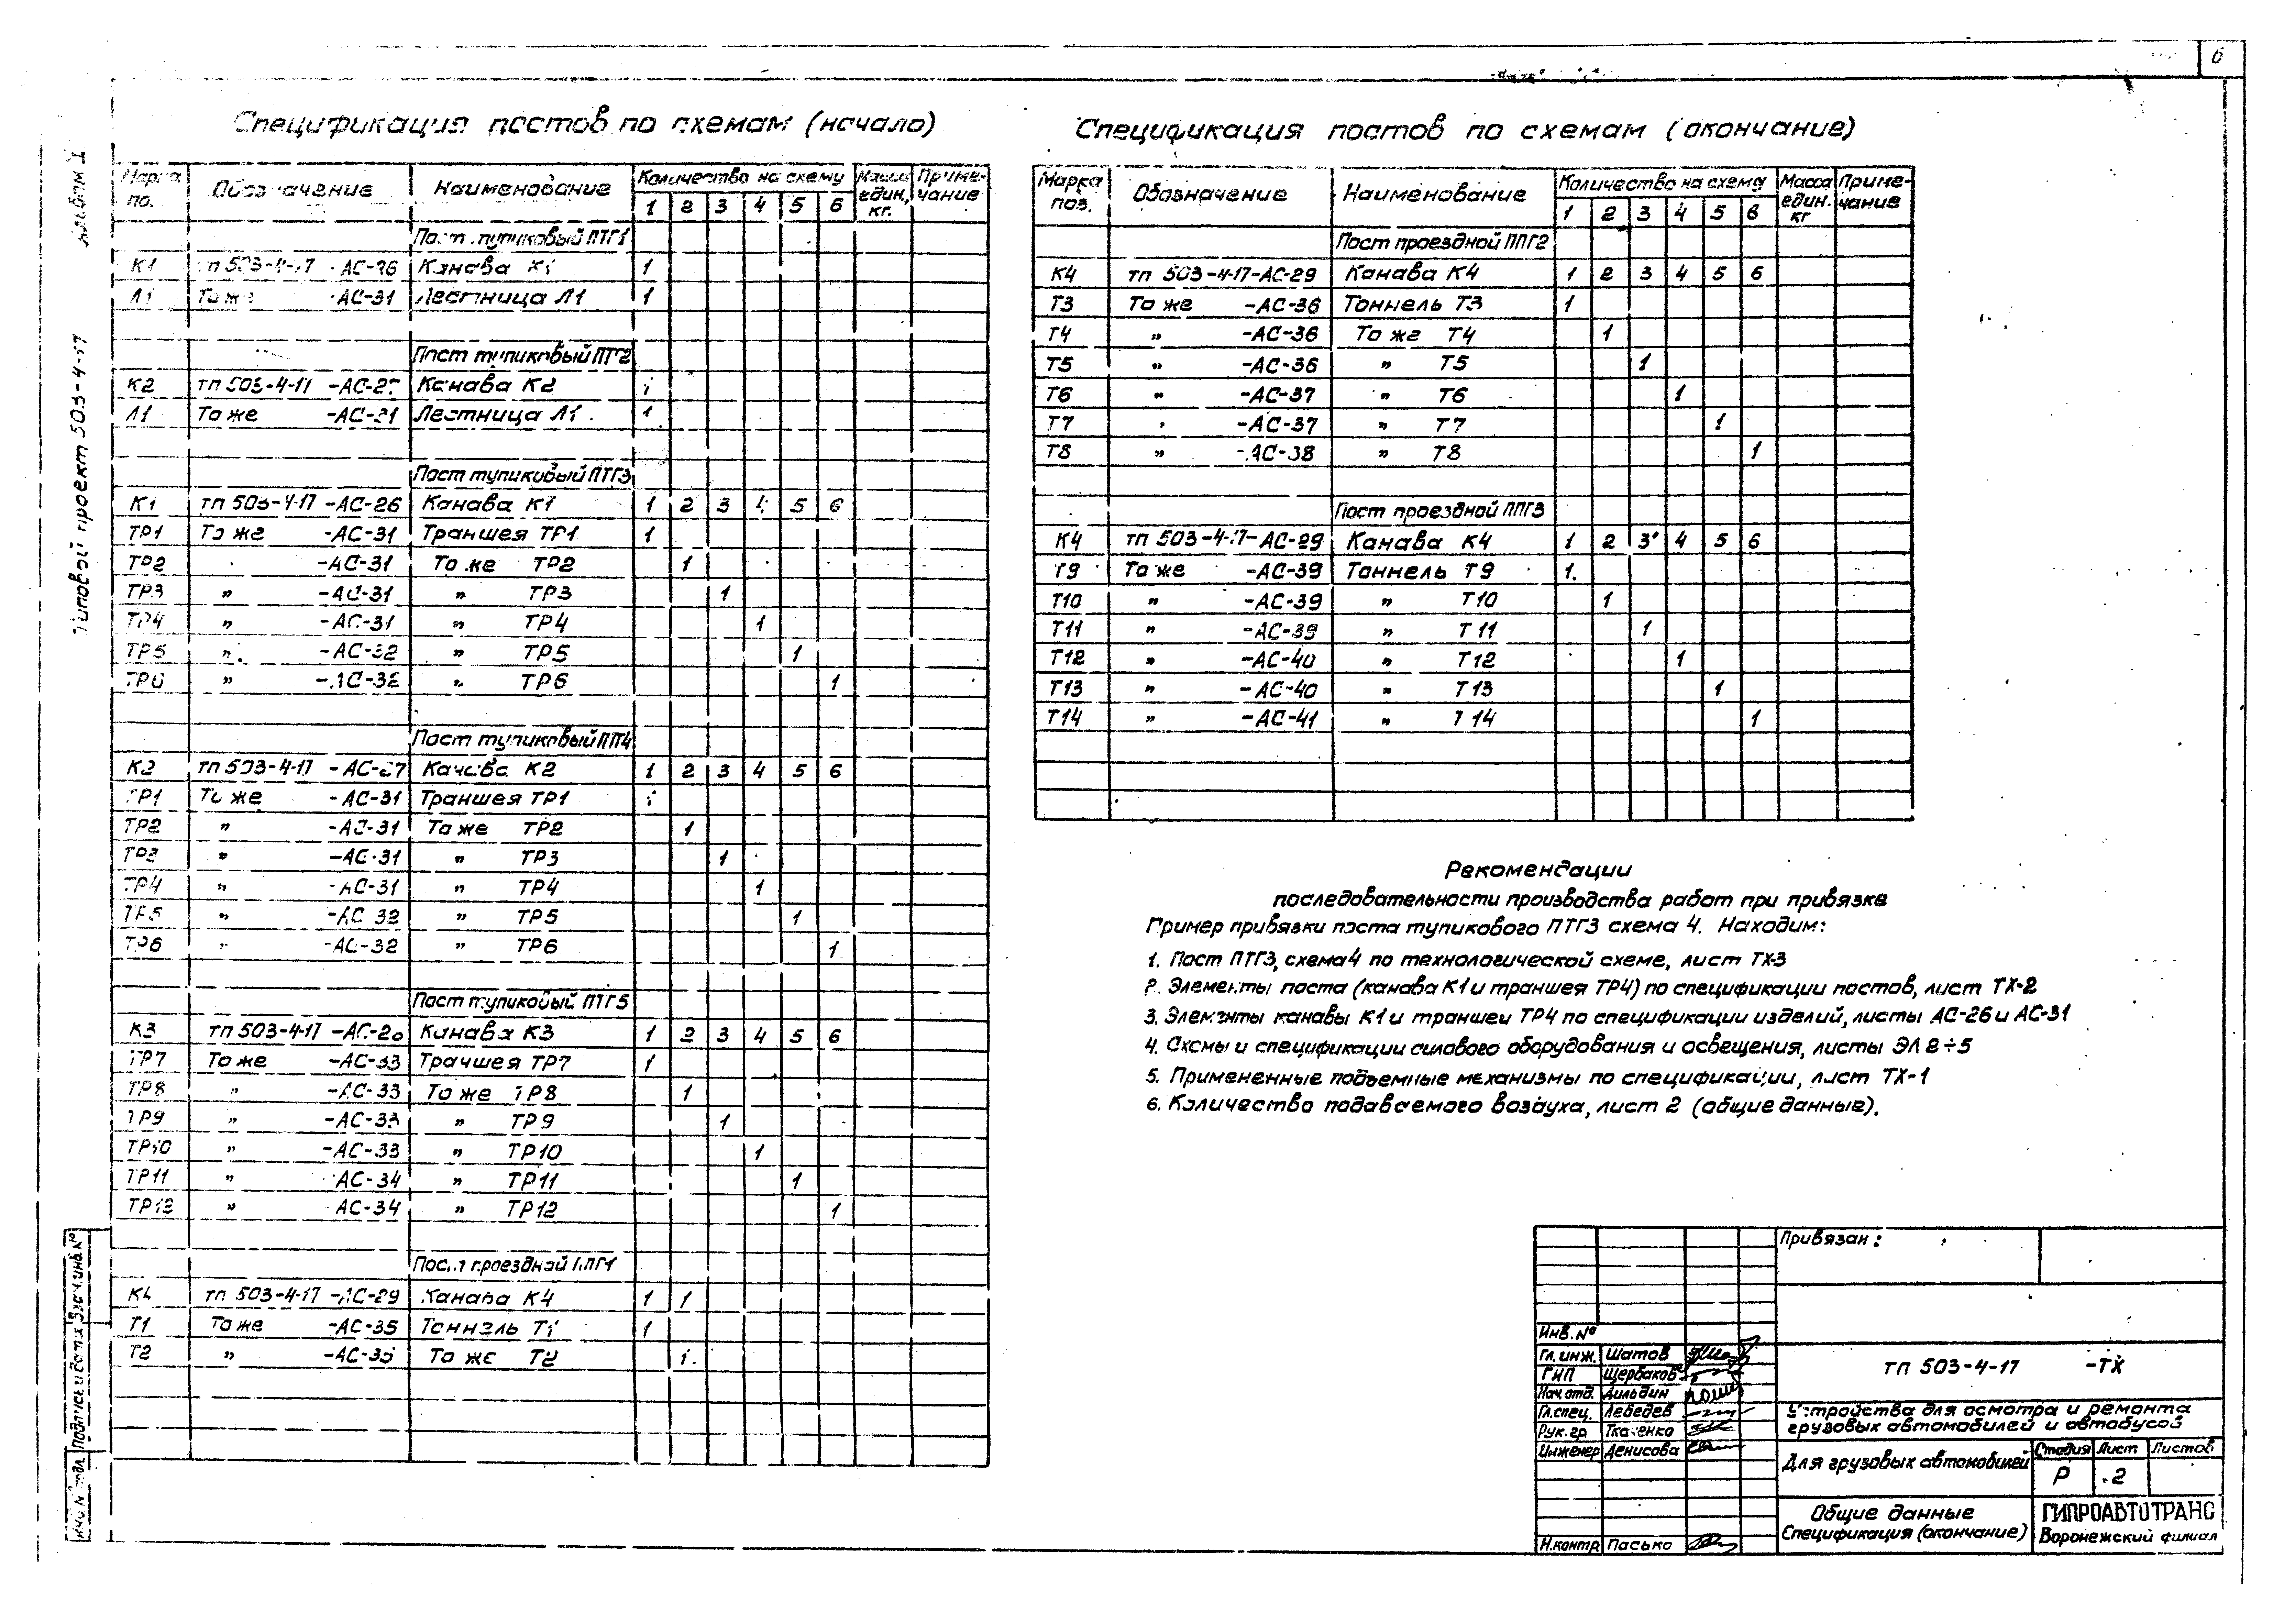 6
Альбом I
Типовой проект 503-4-17
Спецификация постов по схемам (начало)
Марка поз. Обозначение Наименование Количество на схему Масса един, кг. Приме-чание
1 2 3 4 5 6
Пост тупиковый ПТГ1
К1 тп 503-4-17 -АС-26 Канава К1 1
Л1 То же -АС-31 Лестница Л1 1
Пост тупиковый ПТГ2
К2 тп 503-4-17 -АС-27 Канава К2 1
Л1 То же -АС-31 Лестница Л1 1
Пост тупиковый ПТГ3
К1 тп 503-4-17 -АС-26 Канава К1 1 2 3 4 5 6
ТР1 То же -АС-31 Траншея ТР1 1
ТР2 -АС-31 То же ТР2 1
ТР3 " -АС-31 " ТР3 1
ТР4 " -АС-31 " ТР4 1
ТР5 " -АС-32 " ТР5 1
ТР6 " -АС-32 " ТР6 1
Пост тупиковый ПТГ4
К2 тп 503-4-17 -АС-27 Канава К2 1 2 3 4 5 6
ТР1 То же -АС-31 Траншея ТР1 1
ТР2 " -АС-31 То же ТР2 1
ТР3 " -АС-31 " ТР3 1
ТР4 " -АС-31 " ТР4 1
ТР5 " -АС 32 " ТР5 1
ТР6 " -АС-32 " ТР6 1
Пост тупиковый ПТГ5
К3 тп 503-4-17 -АС-28 Канава К3 1 2 3 4 5 6
ТР7 То же -АС-33 Траншея ТР7 1
ТР8 " -АС-33 То же ТР8 1
ТР9 " -АС-33 " ТР9 1
ТР10 " -АС-33 " ТР10 1
ТР11 " АС-34 " ТР11 1
ТР12 " АС-34 " ТР12 1
Пост проездной ППГ1
К4 тп 503-4-17 -АС-29 Канава К4 1 1
Т1 То же -АС-35 Тоннель Т1 1
Т2 " -АС-35 То же Т2 1
Спецификация постов по схемам (окончание)
Марка поз. Обозначение Наименование Количество на схему Масса един. кг Приме-чание
1 2 3 4 5 6
Пост проездной ППГ2
К4 тп 503-4-17-АС-29 Канава К4 1 2 3 4 5 6
Т3 То же -АС-36 Тоннель Т3 1
Т4 " -АС-36 То же Т4 1
Т5 " -АС-36 " Т5 1
Т6 " -АС-37 " Т6 1
Т7 " -АС-37 " Т7 1
Т8 " -АС-38 " Т8 1
Пост проездной ППГ3
К4 тп 503-4-17-АС-29 Канава К4 1 2 3 4 5 6
Т9 То же -АС-39 Тоннель Т9 1
Т10 " -АС-39 " Т10 1
Т11 " -АС-39 " Т11 1
Т12 " -АС-40 " Т12 1
Т13 " -АС-40 " Т13 1
Т14 " -АС-41 " Т14 1
Рекомендации
последовательности производства работ при привязке
Пример привязки поста тупикового ПТГ3 схема 4. Находим:
1. Пост ПТГ3, схема 4 по технологической схеме, лист ТХ-3
2. Элементы поста (канава К1 и траншея ТР4) по спецификации постов, лист ТХ-2
3. Элементы канавы К1 и траншеи ТР4 по спецификации изделий, листы АС-26 и АС-31
4. Схемы и спецификации силового оборудования и освещения, листы ЭЛ 2÷5
5. Примененные подъемные механизмы по спецификации, лист ТХ-1
6. Количество подаваемого воздуха, лист 2 (общие данные).
Привязан:
Инв. №
Гл. инж. Шатов
ГИП Щербаков
Нач. отд. Дильдин
Гл. спец. Лебедев
Рук. гр Ткаченко
Инженер Денисова
Н.контр Пасько
тп 503-4-17 -ТХ
Устройства для осмотра и ремонта
грузовых автомобилей и автобусов
Для грузовых автомобилей
Стадия Лист Листов
Р 2
Общие данные
Спецификация (окончание)
ГИПРОАВТОТРАНС
Воронежский филиал
Инв № подл. Подпись и дата Взам. инв. №